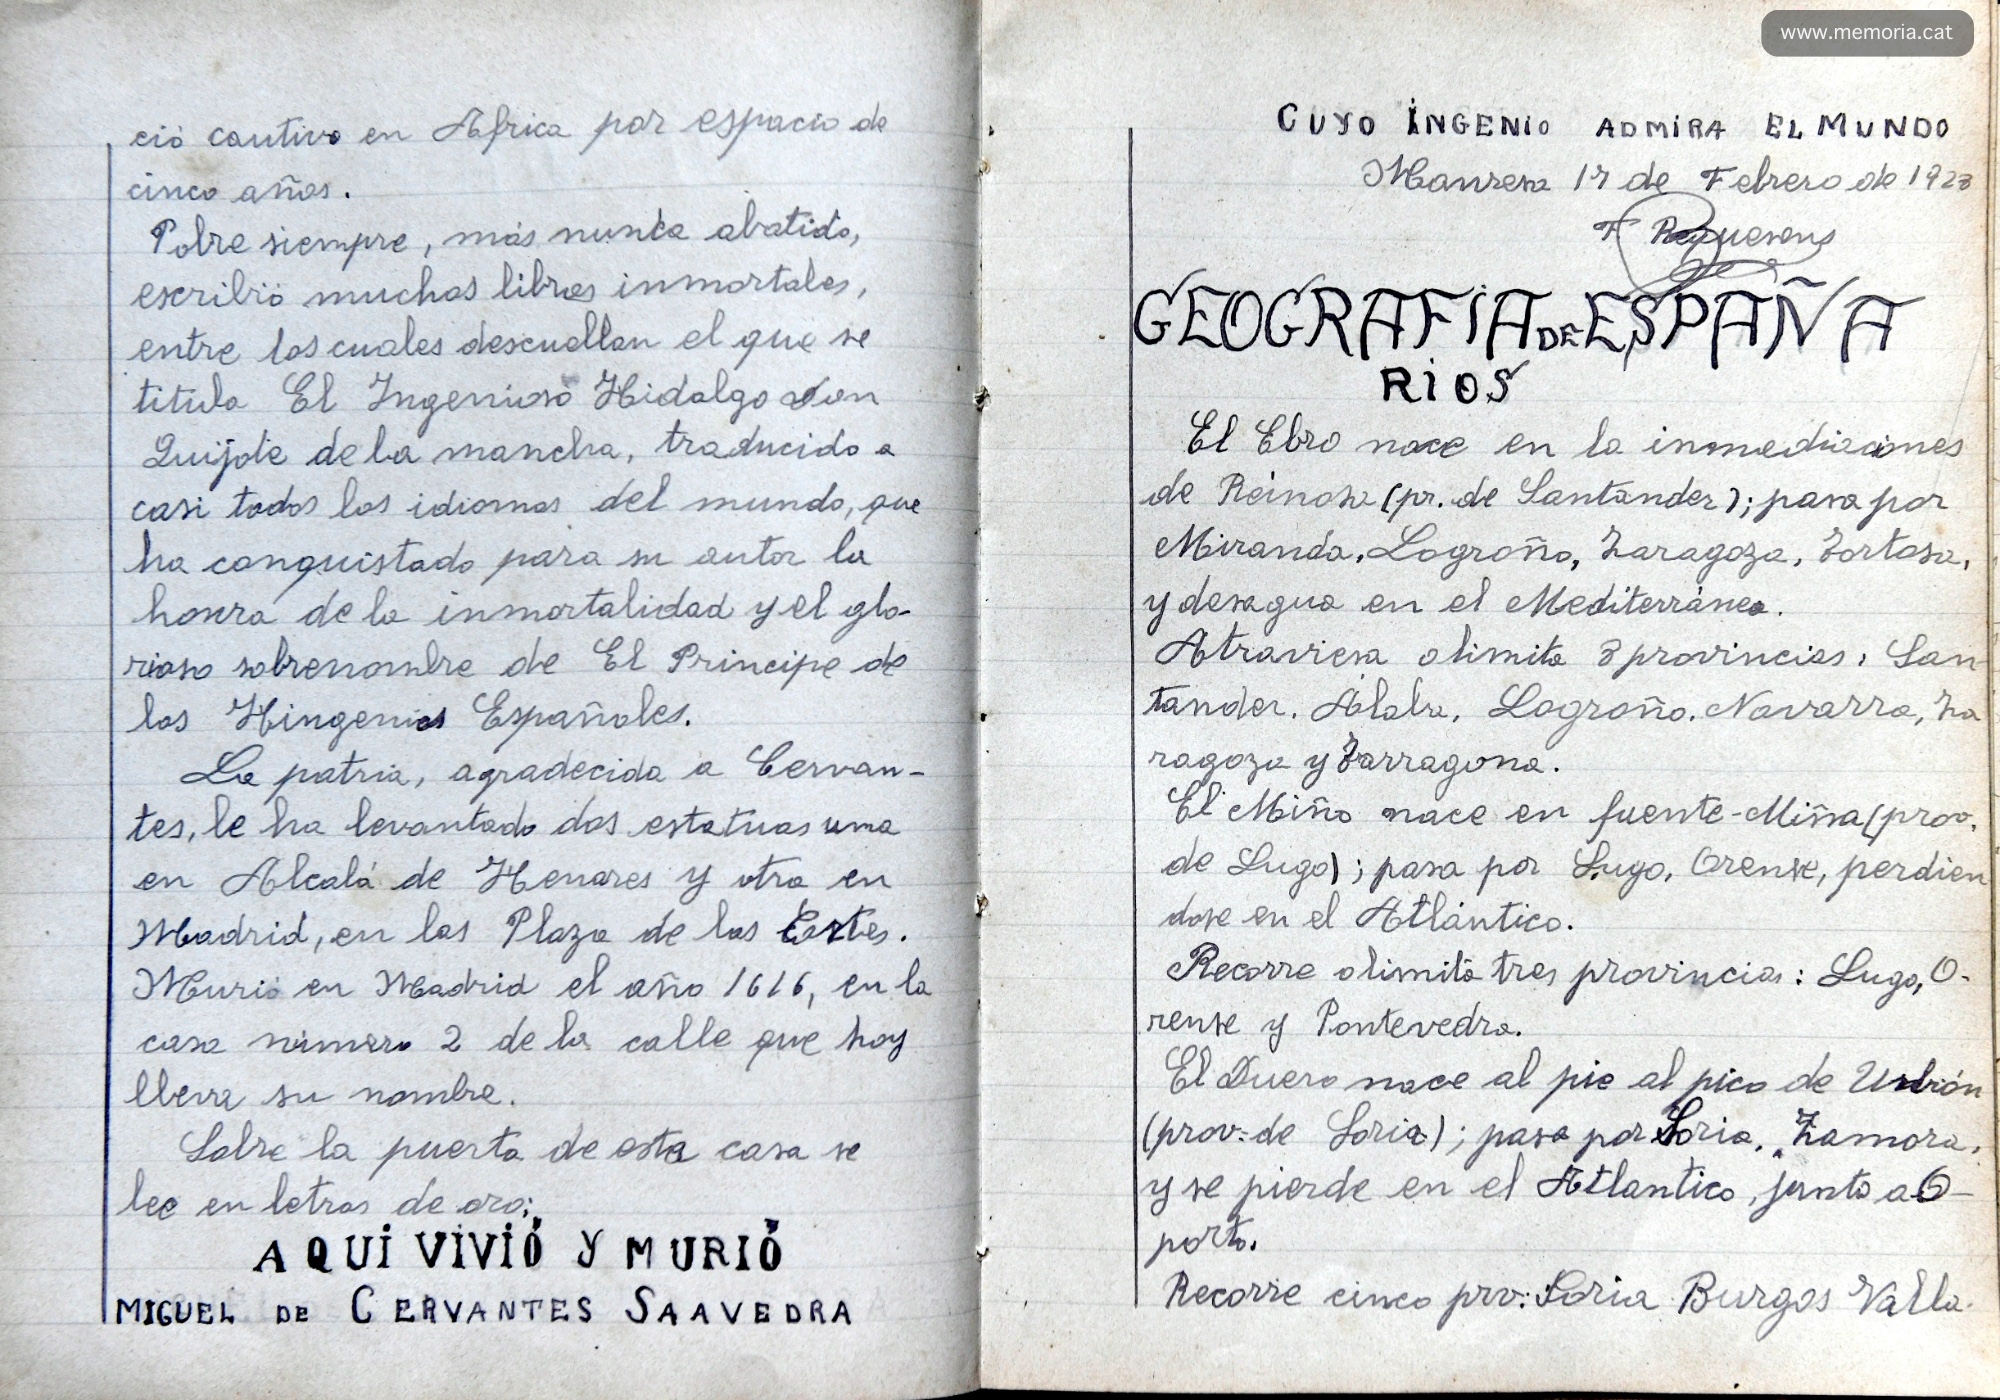 ció cautivo en Africa por espacio de
cinco años.
Pobre siempre, más nunca abatido,
escribió muchos libros inmortales,
entre los cuales descuellan el que se
titula El Ingenioso Hidalgo don
Quijote de la mancha, traducido a
casi todos los idiomas del mundo, que
ha conquistado para su autor la
honra de la inmortalidad y el glo-
rioso sobrenombre de El Principe de
los Hingenios Españoles.
La patria, agradecida a Cervan-
tes, le ha levantado dos estatuas una
en Alcalá de Henares y otra en
Madrid, en las Plaza de las Cortes.
Murió en Madrid el año 1616, en la
casa número 2 de la calle que hoy
lleva su nombre.
Sobre la puerta de esta casa se
lee en letras de oro:
AQUI VIVIÓ Y MURIÓ
MIGUEL DE CERVANTES SAAVEDRA
www.memoria.cat
CUYO INGENIO ADMIRA EL MUNDO
Manresa 17 de Febrero de 1928
F Requesens
GEOGRAFIA DE ESPAÑA
RIOS
El Ebro nace en la inmediaciones
de Reinosa (pr. de Santander); pasa por
Miranda, Logroño, Zaragoza, Tortosa,
y desagua en el Mediterráneo.
Atraviesa o limita 8 provincias, San-
tander. Álaba, Logroño. Navarra, Za
ragoza y Tarragona.
El Miño nace en fuente-Miña (prov.
de Lugo); pasa por Lugo, Orense, perdien
dose en el Atlántico.
Recorre o limita tres provincias: Lugo, O-
rense y Pontevedra.
El Duero nace al pie al pico de Urbión
(prov: de Soria); pasa por Soria, Zamora,
y se pierde en el Atlantico, junto a O-
porto.
Recorre cinco prv: Soria Burgos Valla-